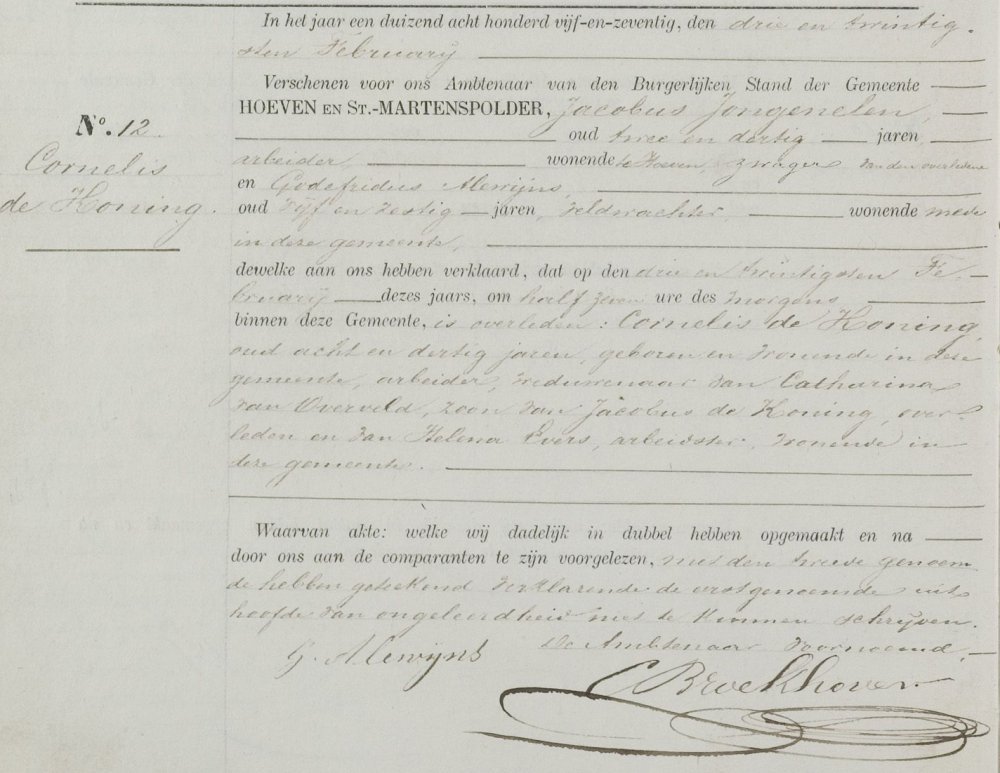 In het jaar een duizend acht honderd vijf-en-zeventig, den drie en twintig-
sten February
Verschenen voor ons Ambtenaar van den Burgerlijken Stand der Gemeente
HOEVEN EN ST.-MARTENSPOLDER, Jacobus Jongenelen,
oud twee en dertig jaren,
arbeider, wonende te Hoeven, zwager van den overledene
en Godefridus Alewijns,
oud vijf en zestig jaren, veldwachter, wonende mede
in deze gemeente,
dewelke aan ons hebben verklaard, dat op den drie en twintigsten Fe-
bruarij dezes jaars, om half zeven ure des morgens,
binnen deze Gemeente, is overleden: Cornelis de Koning,
oud acht en dertig jaren, geboren en wonende in deze
gemeente, arbeider, weduwenaar van Catharina
van Overveld, zoon van Jacobus de Koning, over-
leden en van Helena Evers, arbeidster, wonende in
deze gemeente.
No. 12
Cornelis
de Koning.
Waarvan akte: welke wij dadelijk in dubbel hebben opgemaakt en na
door ons aan de comparanten te zijn voorgelezen, met den tweede genoem-
de hebben geteekend verklarende de eerstgenoemde uit
hoofde van ongeleerdheid niet te kunnen schrijven.
G. Alewijns De Ambtenaar voornoemd,
C Broekhoven